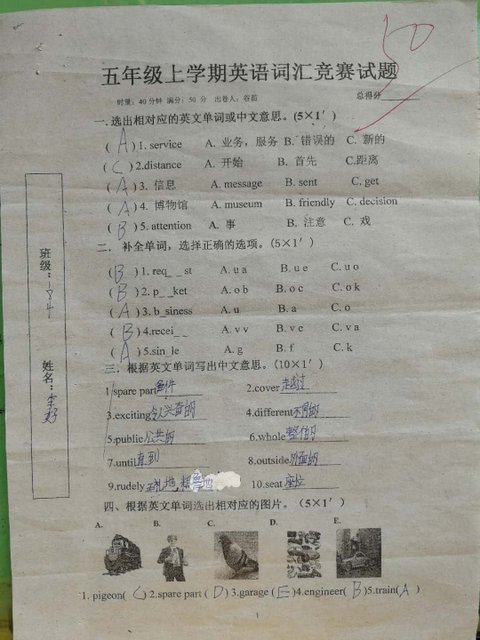 50
五年级上学期英语词汇竞赛试题
时量：40分钟 满分：50分 出卷人：谷茁 总得分
一.选出相对应的英文单词或中文意思。(5×1′)
( A ) 1. service A. 业务，服务 B. 错误的 C. 新的
( C ) 2.distance A. 开始 B. 首先 C.距离
( A ) 3. 信息 A. message B. sent C. get
( A ) 4. 博物馆 A. museum B. friendly C. decision
( B ) 5. attention A. 事 B. 注意 C. 戏
二. 补全单词，选择正确的选项。(5×1′)
( B ) 1. req_ _ st A. u a B. u e C. u o
( B ) 2. p_ _ket A. o b B. o c C. o k
( A ) 3. b_siness A. u B. a C. o
( B ) 4.recei_ _ A. v v B. v e C. v a
( A ) 5.sin_le A. g B. f C. k
三. 根据英文单词写出中文意思。(10×1′)
1.spare part备件 2.cover走过
3.exciting令人兴奋的 4.different不同的
5.public公共的 6.whole整个的
7.until直到 8.outside外面的
9.rudely 无礼地, 粗鲁地 10.seat 座位
四、根据英文单词选出相对应的图片。（5×1′）
A. B. C. D. E.
1. pigeon( C ) 2.spare part ( D ) 3.garage ( E )4.engineer( B )5.train( A )
1
班级：184
姓名：